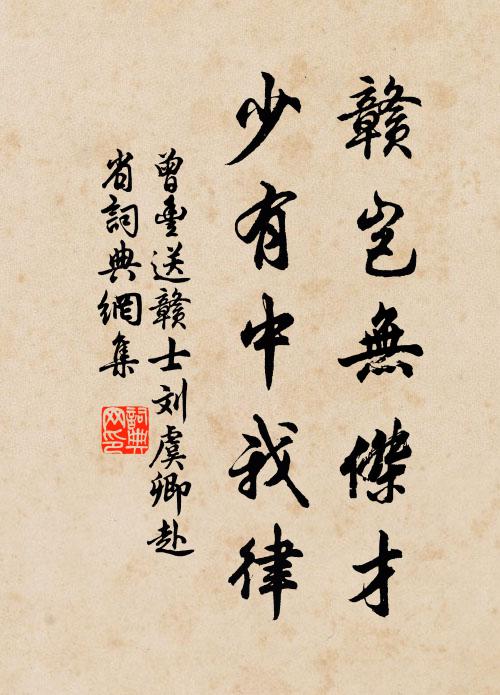 贛豈無傑才
少有中我律
曾豐送贛士刘虞卿赴
省詞典網集
詞典网印